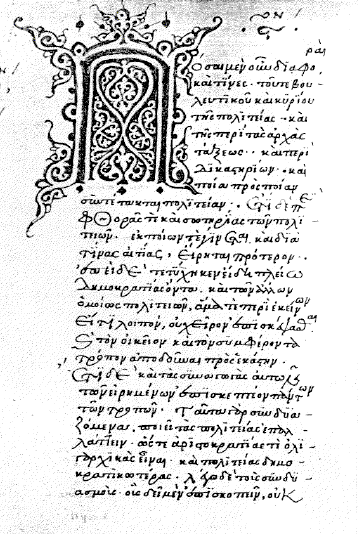 Πόσαι μὲν οὖν διαφο
ραὶ
καὶ τίνες τοῦ τε βου-
λευτικοῦ καὶ κυρίου
τῆς πολιτείας· καὶ
τῆς περὶ τὰς ἀρχὰς
τάξεως· καὶ περὶ
δικαστηρίων· καὶ
ποία πρὸς ποίαν
συντέτακται πολιτείαν. ἔτι δὲ περὶ
φθορᾶς τε καὶ σωτηρίας τῶν πολι-
τειῶν. ἐκ ποίων τε γίνεται καὶ διὰ
τίνας αἰτίας, εἴρηται πρότερον.
ἐπεὶ δὲ τετύχηκεν εἴδη πλείω
δημοκρατίας ὄντα. καὶ τῶν ἄλλων
ὁμοίως πολιτειῶν, ἅμα τε περὶ ἐκείνων
εἴ τι λοιπόν, οὐ χεῖρον ἐπισκέψασθαι
τὸν οἰκεῖον καὶ τὸν συμφέροντα
τρόπον ἀποδοῦναι πρὸς ἑκάστην.
ἔτι δὲ καὶ τὰς συναγωγὰς αὐτῶν
τῶν εἰρημένων ἐπισκεπτέον πάντων
τῶν τρόπων. ταῦτα γὰρ συνδυα-
ζόμενα, ποιεῖ τὰς πολιτείας ἐπαλ-
λάττειν, ὥστε ἀριστοκρατίας τε ὀλι-
γαρχικὰς εἶναι· καὶ πολιτείας δημο-
κρατικωτέρας. λέγω δὲ τοὺς συνδυ-
ασμοὺς οὓς δεῖ μὲν ἐπισκοπεῖν, οὐκ